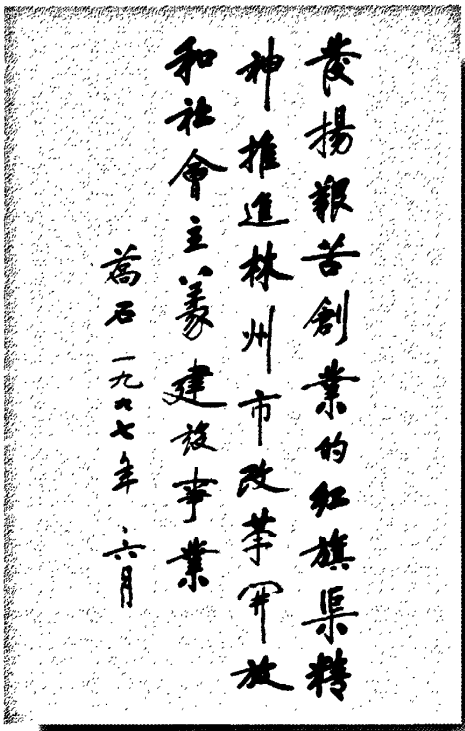 發揚艱苦創業的紅旗渠精
神推進林州市改革開放
和社會主義建設事業
喬石 一九九七年 六月